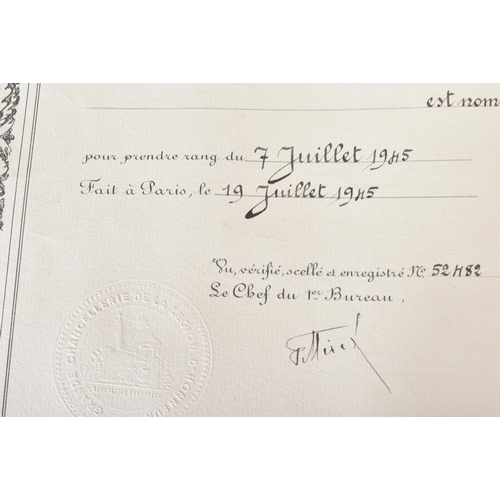 est nom
pour prendre rang du 7 Juillet 1945
Fait à Paris, le 19 Juillet 1945
Vu, vérifié, scellé et enregistré N° 52482
Le Chef du 1er Bureau,
GRANDE CHANCELLERIE DE LA LÉGION D'HONNEUR